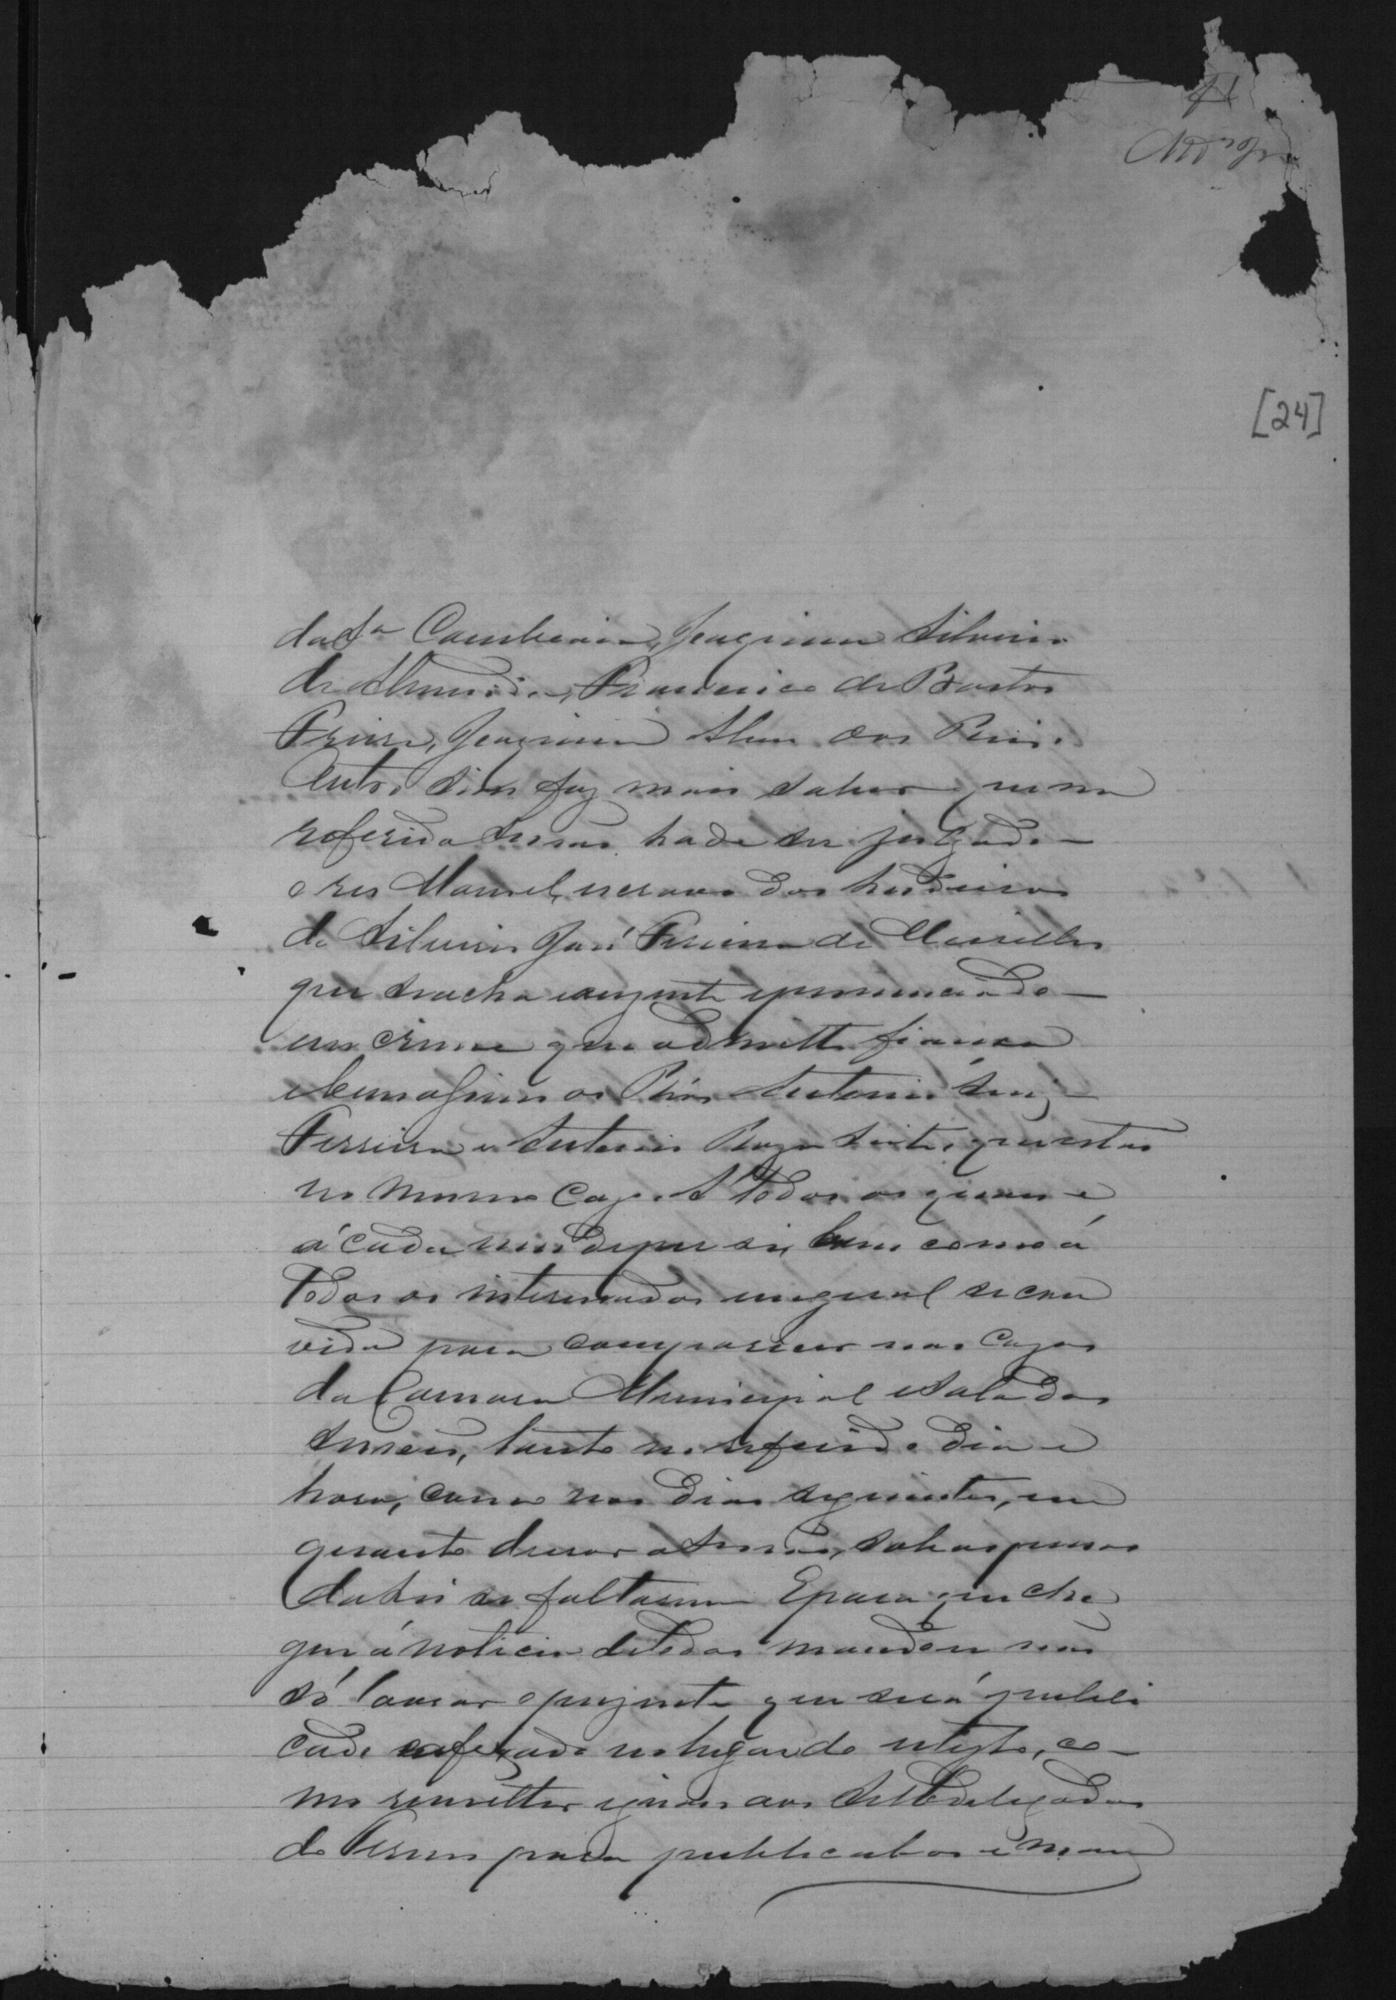 [24]
da Sª Joaquim Silverio
de Almeida, Francisco de Bastos
Freire, Joaquim Alves dos Reis.
Outro sim faz mais saber que na
referida sessão hade ser julgado
o reo Manoel, escravo dos herdeiros
de Silverio José Ferreira de
que se acha auzente e pronunciado
em crime que admitte fiança
e bem assim os Réos Antonio Luiz
Ferreira e Antonio que estão
no mesmo cazo. A todos os quaes e
á cada um de per si, bem como á
todos os interessados em geral se con
vida para comparecer nas Cazas
da Camara Municipal e Sala das
sessões, tanto no referido dia e
hora, como nos dias seguintes, em
quanto durar a sessão, sob as penas
da lei se faltarem. E para que che
gue á noticia de todos mandou não
só lavrar o prezente que será publi
cado e afixado no lugar do estylo, co
mo remetter iguaes aos Subdelegados
do Termo para publical-os e man